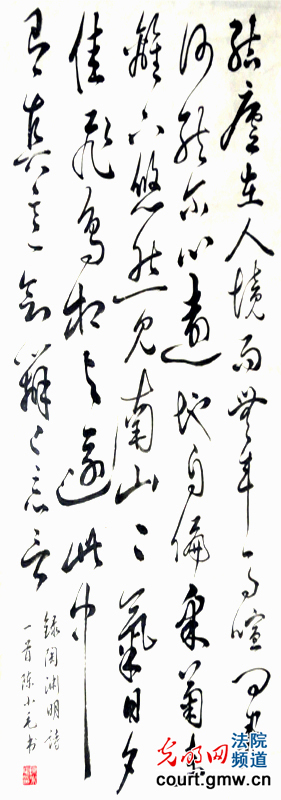 結廬在人境而無車馬喧问君
何能尔心遠地自偏采菊东
籬下悠然见南山〻氣日夕
佳飛鸟相与還此中
有真意欲辯已忘言
録陶渊明詩
一首陈小毛书
光明网 法院
频道
court.gmw.cn